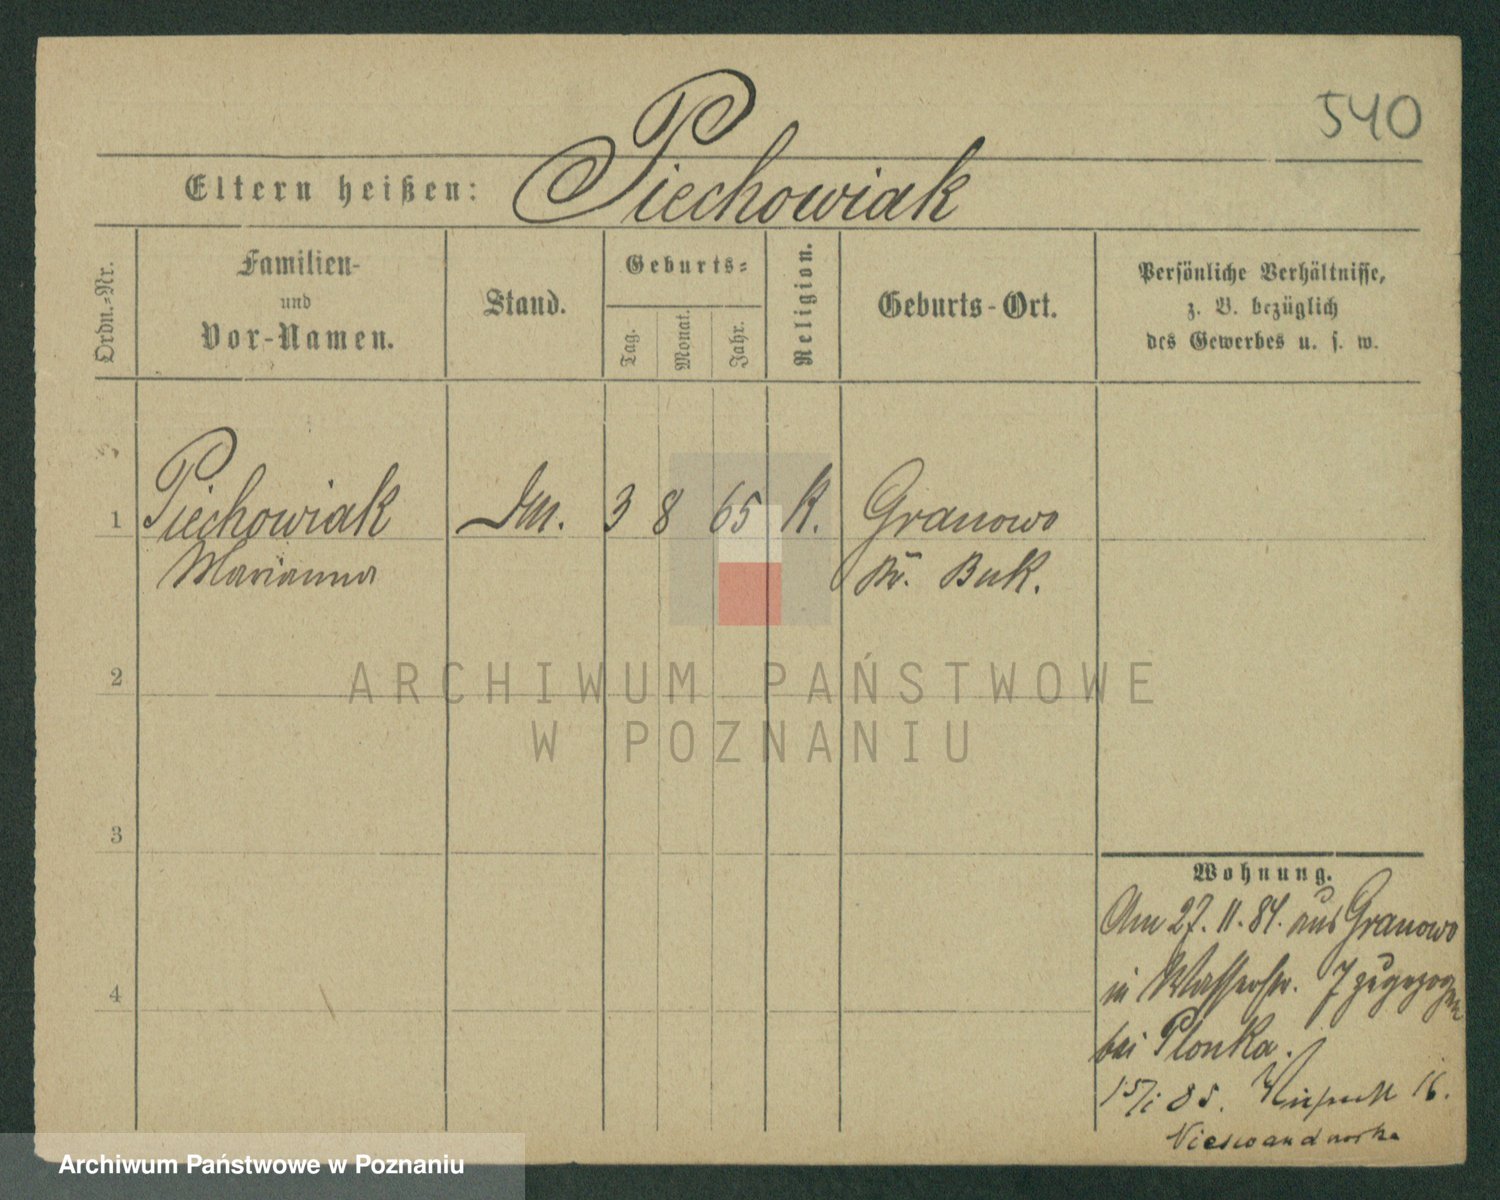 540
Eltern heißen: Piechowiak
Ordn.-Nr.
Familien-
und
Vor-Namen.
Stand.
Geburts-
Tag.
Monat.
Jahr.
Religion.
Geburts-Ort.
Persönliche Verhältnisse,
z. B. bezüglich
des Gewerbes u. s. w.
1 Piechowiak 3 8 65 K. Granowo
Marianna Kr. Buk.
2
3
4
Wohnung.
Am 27. 11. 84. aus Granowo
in Wasserstr. 7 zugezogen
bei Plonka.
15/1 85. 16.
ARCHIWUM PAŃSTWOWE
W POZNANIU
Archiwum Państwowe w Poznaniu